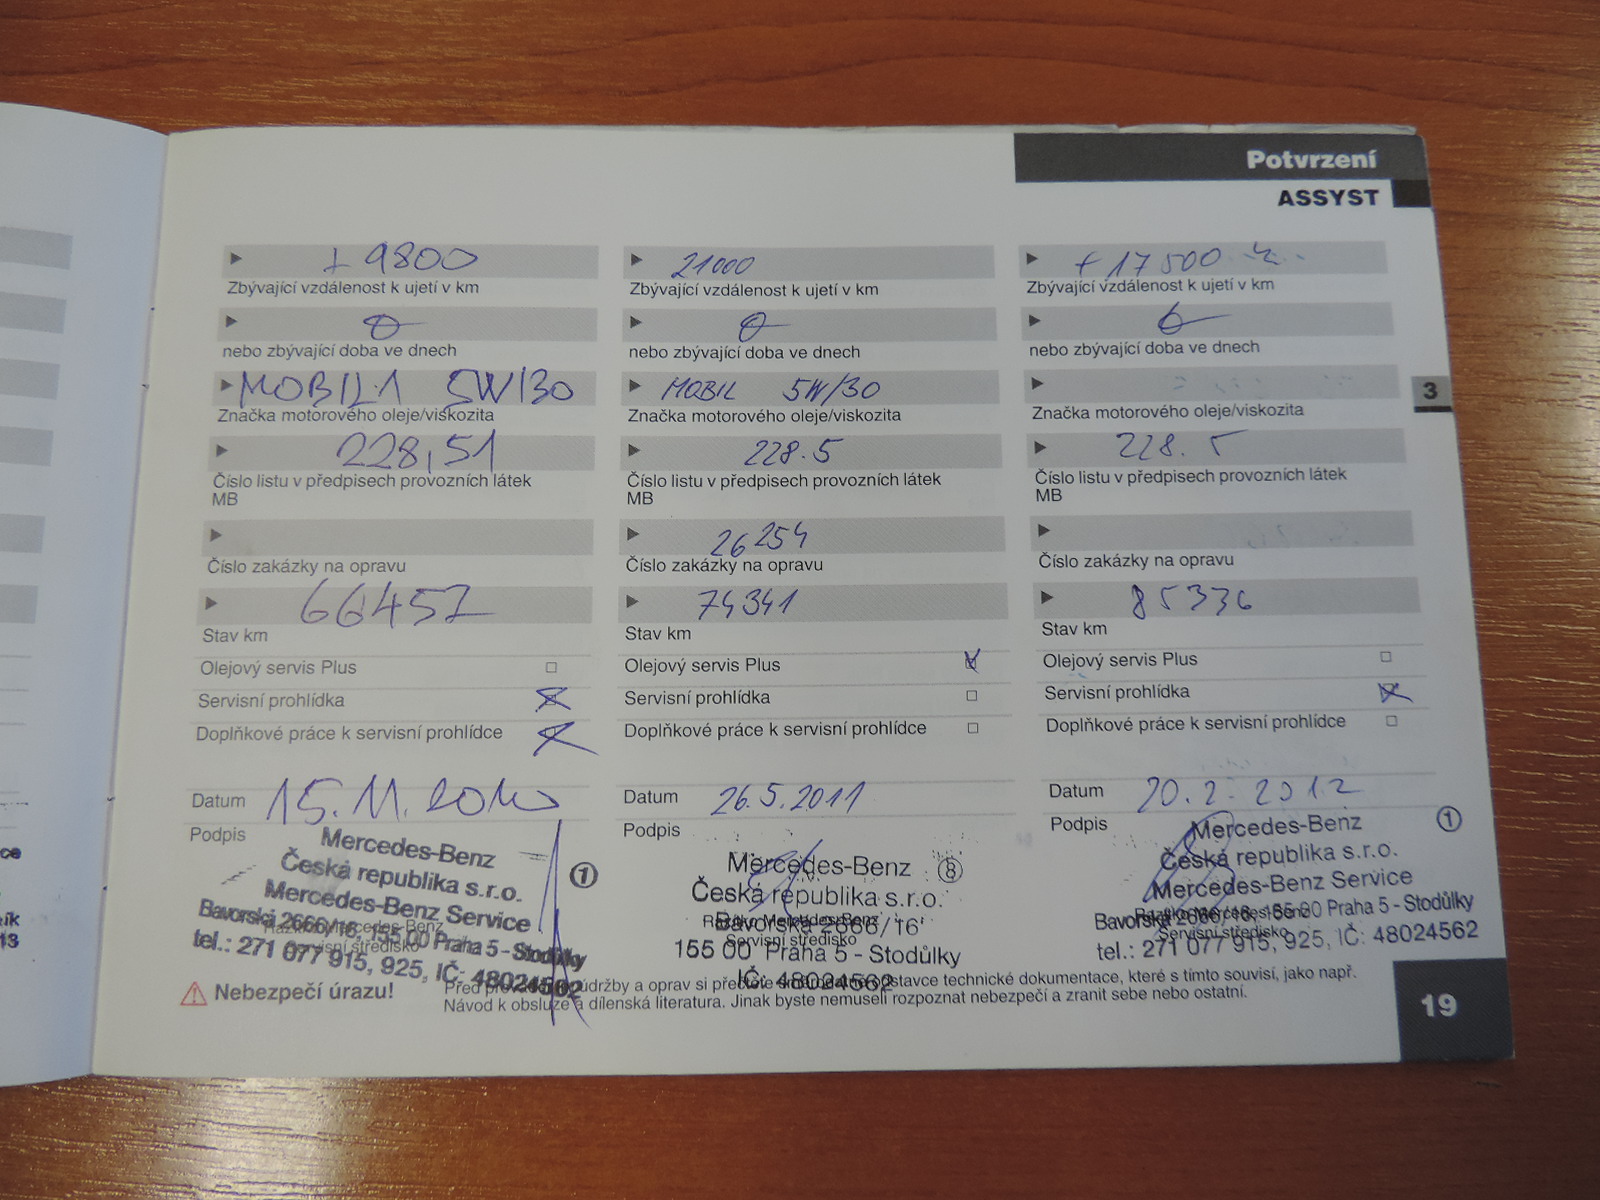 Potvrzení
ASSYST
+ 9800
Zbývající vzdálenost k ujetí v km
nebo zbývající doba ve dnech
MOBIL 1 5W/30
Značka motorového oleje/viskozita
228,51
Číslo listu v předpisech provozních látek
MB
Číslo zakázky na opravu
66457
Stav km
Olejový servis Plus
Servisní prohlídka
Doplňkové práce k servisní prohlídce
Datum 15.11.2010
Podpis
Mercedes-Benz
Česká republika s.r.o.
Mercedes-Benz Service
Bavorská 2666/16, 155 00 Praha 5 - Stodůlky
tel.: 271 077 915, 925, IČ: 48024562
1
21000
Zbývající vzdálenost k ujetí v km
nebo zbývající doba ve dnech
MOBIL 5W/30
Značka motorového oleje/viskozita
228.5
Číslo listu v předpisech provozních látek
MB
26254
Číslo zakázky na opravu
74341
Stav km
Olejový servis Plus
Servisní prohlídka
Doplňkové práce k servisní prohlídce
Datum 26.5.2011
Podpis
Mercedes-Benz
Česká republika s.r.o.
Bavorská 2666/16
155 00 Praha 5 - Stodůlky
IČ: 48024562
8
+ 17500
Zbývající vzdálenost k ujetí v km
nebo zbývající doba ve dnech
Značka motorového oleje/viskozita
228.5
Číslo listu v předpisech provozních látek
MB
Číslo zakázky na opravu
85336
Stav km
Olejový servis Plus
Servisní prohlídka
Doplňkové práce k servisní prohlídce
Datum 20.2.2012
Podpis
Mercedes-Benz
Česká republika s.r.o.
Mercedes-Benz Service
Bavorská 2666/16, 155 00 Praha 5 - Stodůlky
tel.: 271 077 915, 925, IČ: 48024562
1
3
Nebezpečí úrazu!
Před údržby a oprav si přečtěte odstavce technické dokumentace, které s tímto souvisí, jako např.
Návod k obsluze a dílenská literatura. Jinak byste nemuseli rozpoznat nebezpečí a zranit sebe nebo ostatní.
19